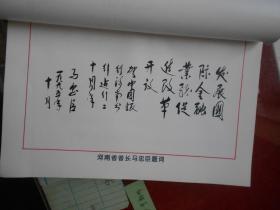 发展国
际金融
业务促
进改革
开放
贺中国银
行河南分
行建行二
十周年
马忠臣
一九九五年
十月
河南省省长马忠臣题词